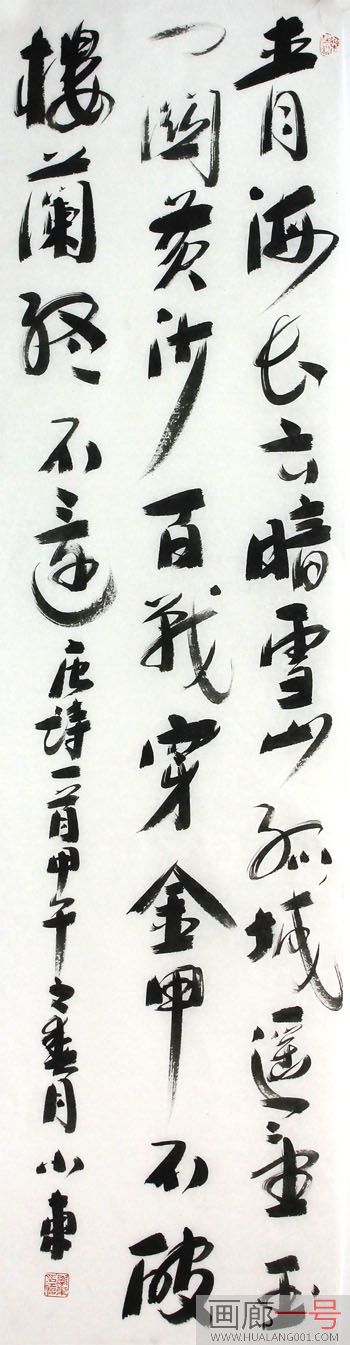 青海长云暗雪山孤城遥望玉
门關黄沙百戰穿金甲不破
樓蘭終不還唐詩一首甲午之春月小東
画廊一号
WWW.HUALANG001.COM